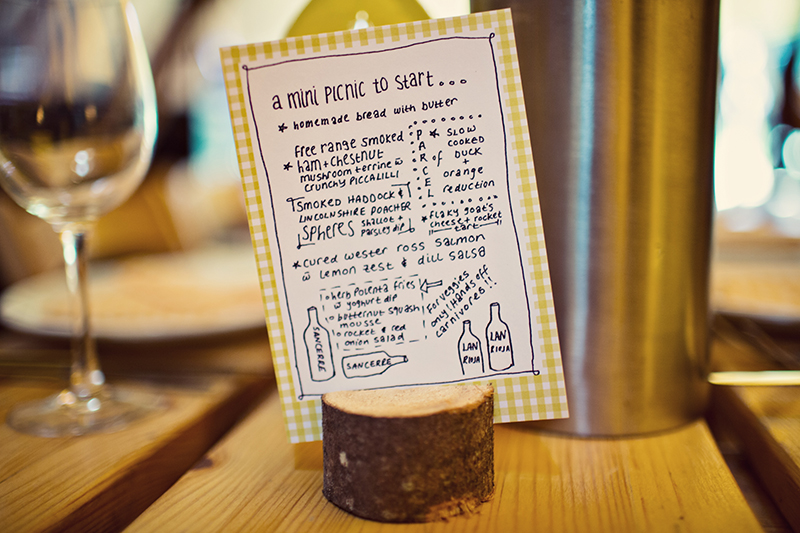 a mini PICNIC to start...
* homemade bread with butter
free range smoked
* ham + chestnut
mushroom terrine w̄
crunchy PICCALILLI
PARCEL of
* SLOW
cooked
DUCK
+
orange
reduction
SMOKED HADDOCK +
LINCOLNSHIRE POACHER
SPHERES shallot +
parsley dip
* flaky goat's
cheese + rocket
tart
* cured wester ross salmon
w̄ lemon zest & dill salsa
o herb Polenta fries
w̄ yoghurt dip
o butternut squash
mousse
o rocket & red
onion salad
For veggies
only! Hands off
carnivores!!
SANCERRE
SANCERRE
LAN
RIOJA
LAN
RIOJA